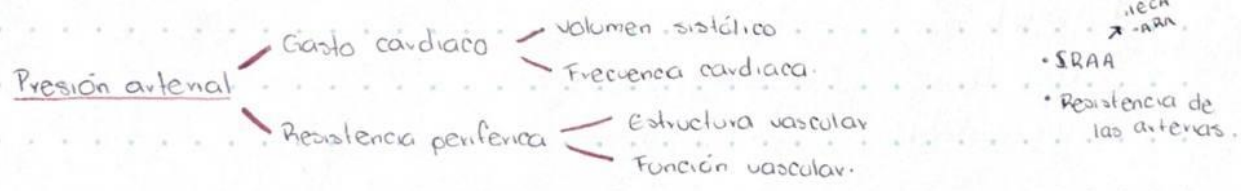 Presión arterial
Gasto cardiaco
volumen sistólico
Frecuenca cardiaca.
Resistencia periferica
Estructura vascular
Función vascular.
IECA
-ARA
• SRAA
• Resistencia de
las arterias.